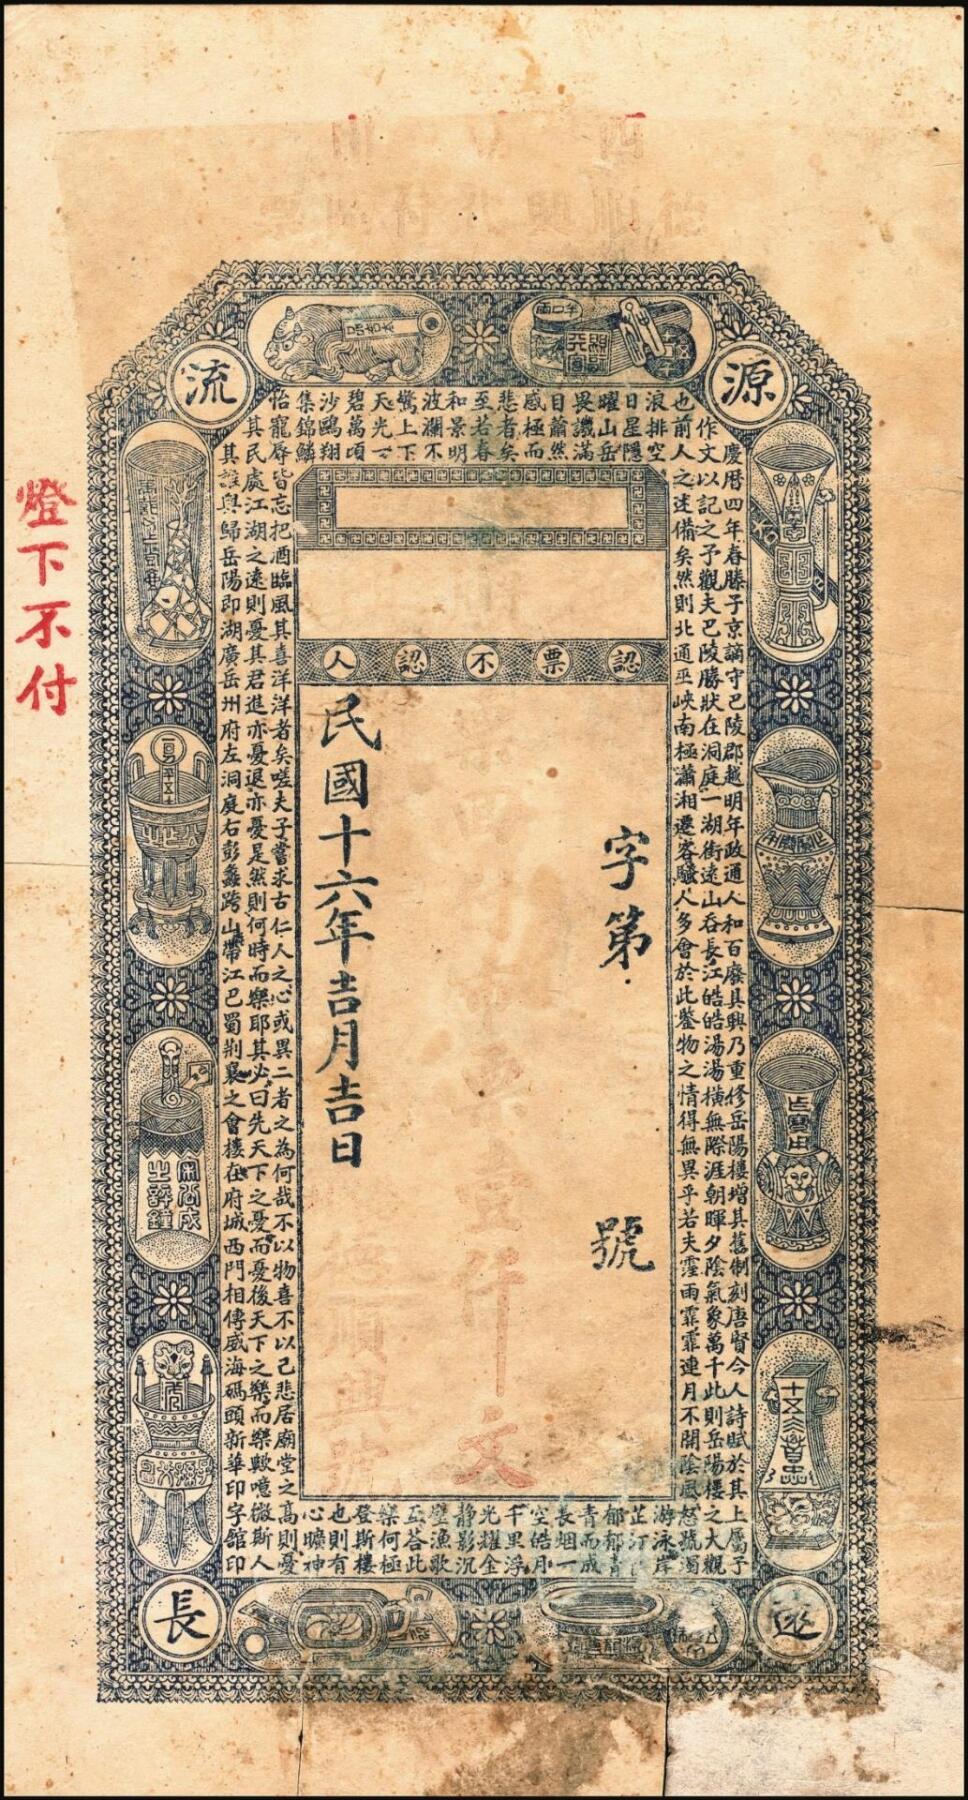 源
流
慶曆四年春滕子京謫守巴陵郡越明年政通人和百廢具興乃重修岳陽樓增其舊制刻唐賢今人詩賦於其上屬予
作文以記之予觀夫巴陵勝狀在洞庭一湖銜遠山吞長江皓皓湯湯橫無際涯朝暉夕陰氣象萬千此則岳陽樓之大觀
也前人之述備矣然則北通巫峽南極瀟湘遷客騷人多會於此鑒物之情得無異乎若夫霪雨霏霏連月不開陰風怒號濁
浪排空
日星隱
曜山岳
畏譏滿
目蕭然
感極而
悲者矣
至若春
和景明
波瀾不
驚上下
天光一
碧萬頃
沙鷗翔
集錦鱗
游泳岸
芷汀
郁郁青
青而成
長烟一
空皓月
千里浮
光耀金
静影沉
璧漁歌
互答此
樂何極
登斯樓
也則有
心曠神
怡寵辱皆忘把酒臨風其喜洋洋者矣嗟夫子嘗求古仁人之心或異二者之為何哉不以物喜不以己悲居廟堂之高則憂
其民處江湖之遠則憂其君進亦憂退亦憂是然則何時而樂耶其必曰先天下之憂而憂後天下之樂而樂歟噫微斯人
其誰與歸岳陽即湖廣岳州府左洞庭右彭蠡跨山帶江巴蜀荊襄之會樓在府城西門相傳威海碼頭新華印字館印
認票不認人
字第
號
票壹仟文
順興號
民國十六年吉月吉日
燈下不付
長